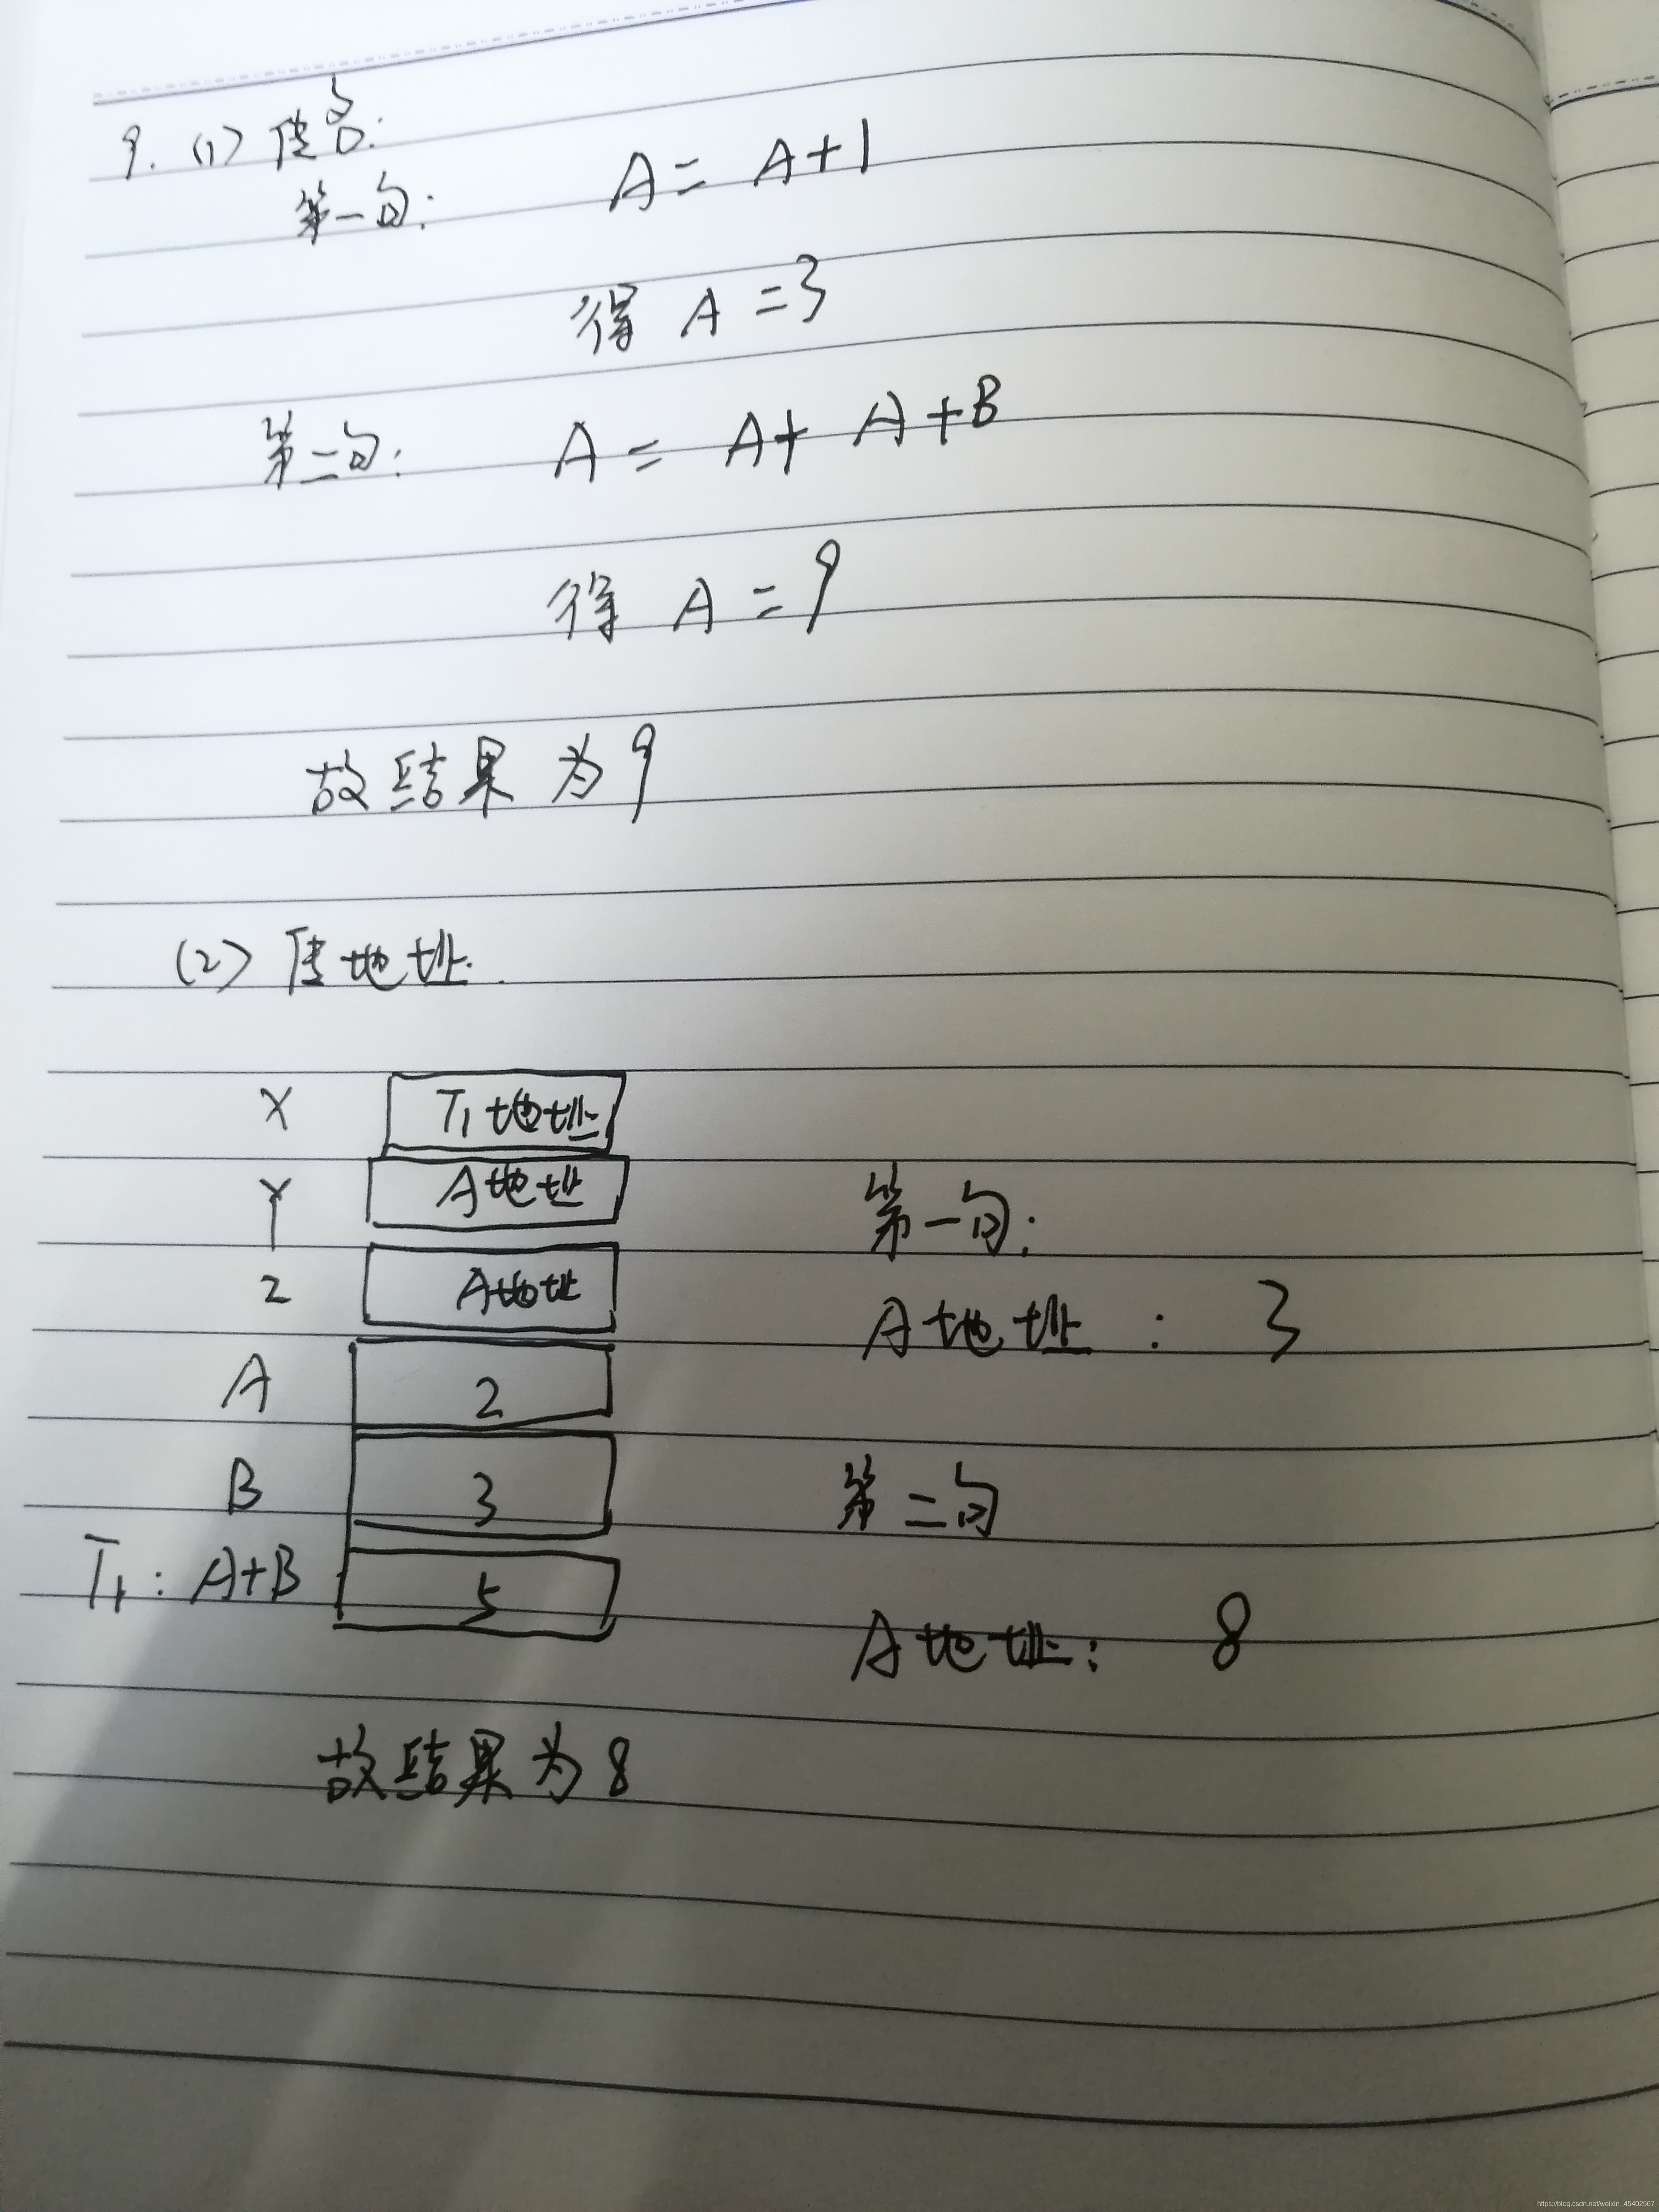 9. (1) 传名:
第一句: A = A+1
得 A = 3
第二句: A = A + A + B
得 A = 9
故结果为9
(2) 传地址.
X T1地址
Y A地址
第一句:
Z A地址
A地址: 3
A 2
B 3
第二句
T1: A+B 5
A地址: 8
故结果为8
https://blog.csdn.net/weixin_45402567